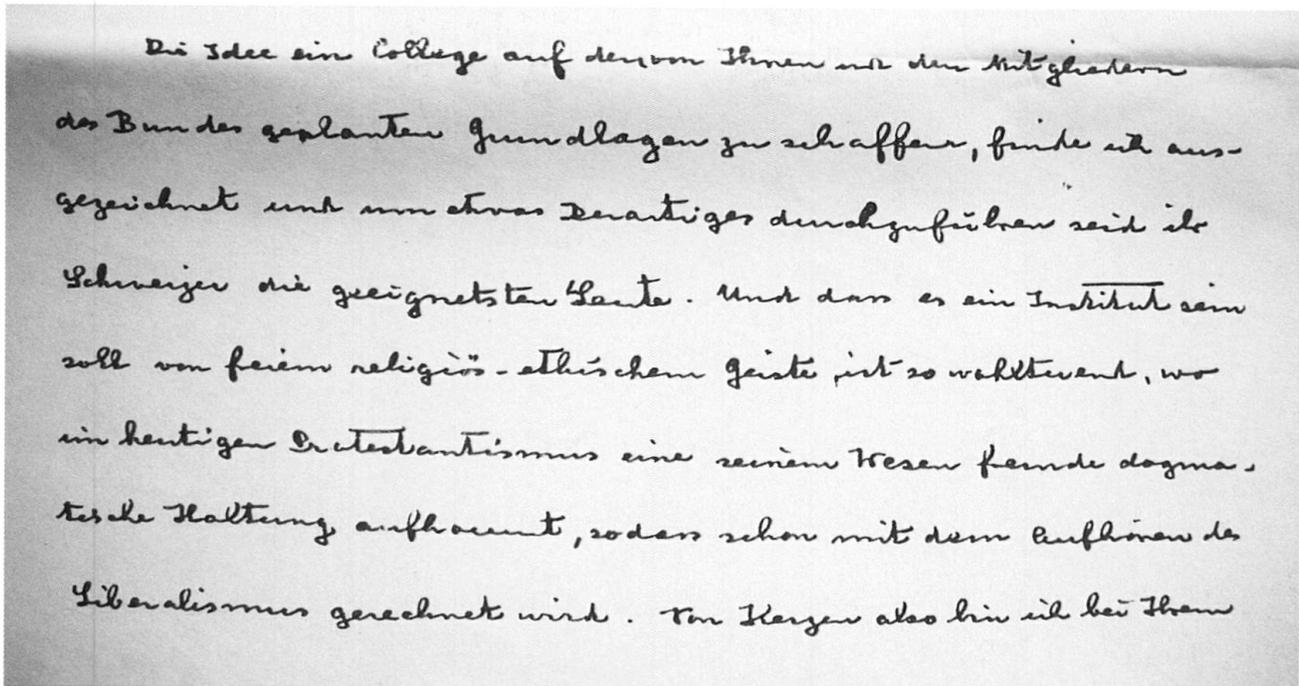 Die Idee ein College auf den von Ihnen und den Mitgliedern
des Bundes geplanten Grundlagen zu schaffen, finde ich aus-
gezeichnet und um etwas Derartiges durchzuführen seid ihr
Schweizer die geeignetsten Leute. Und dass es ein Institut sein
soll von freiem religiös-ethischem Geiste, ist so wohltuend, wo
im heutigen Protestantismus eine seinem Wesen fremde dogma-
tische Haltung aufkommt, sodass schon mit dem Aufhören des
Liberalismus gerechnet wird. Von Herzen also bin ich bei Ihrem